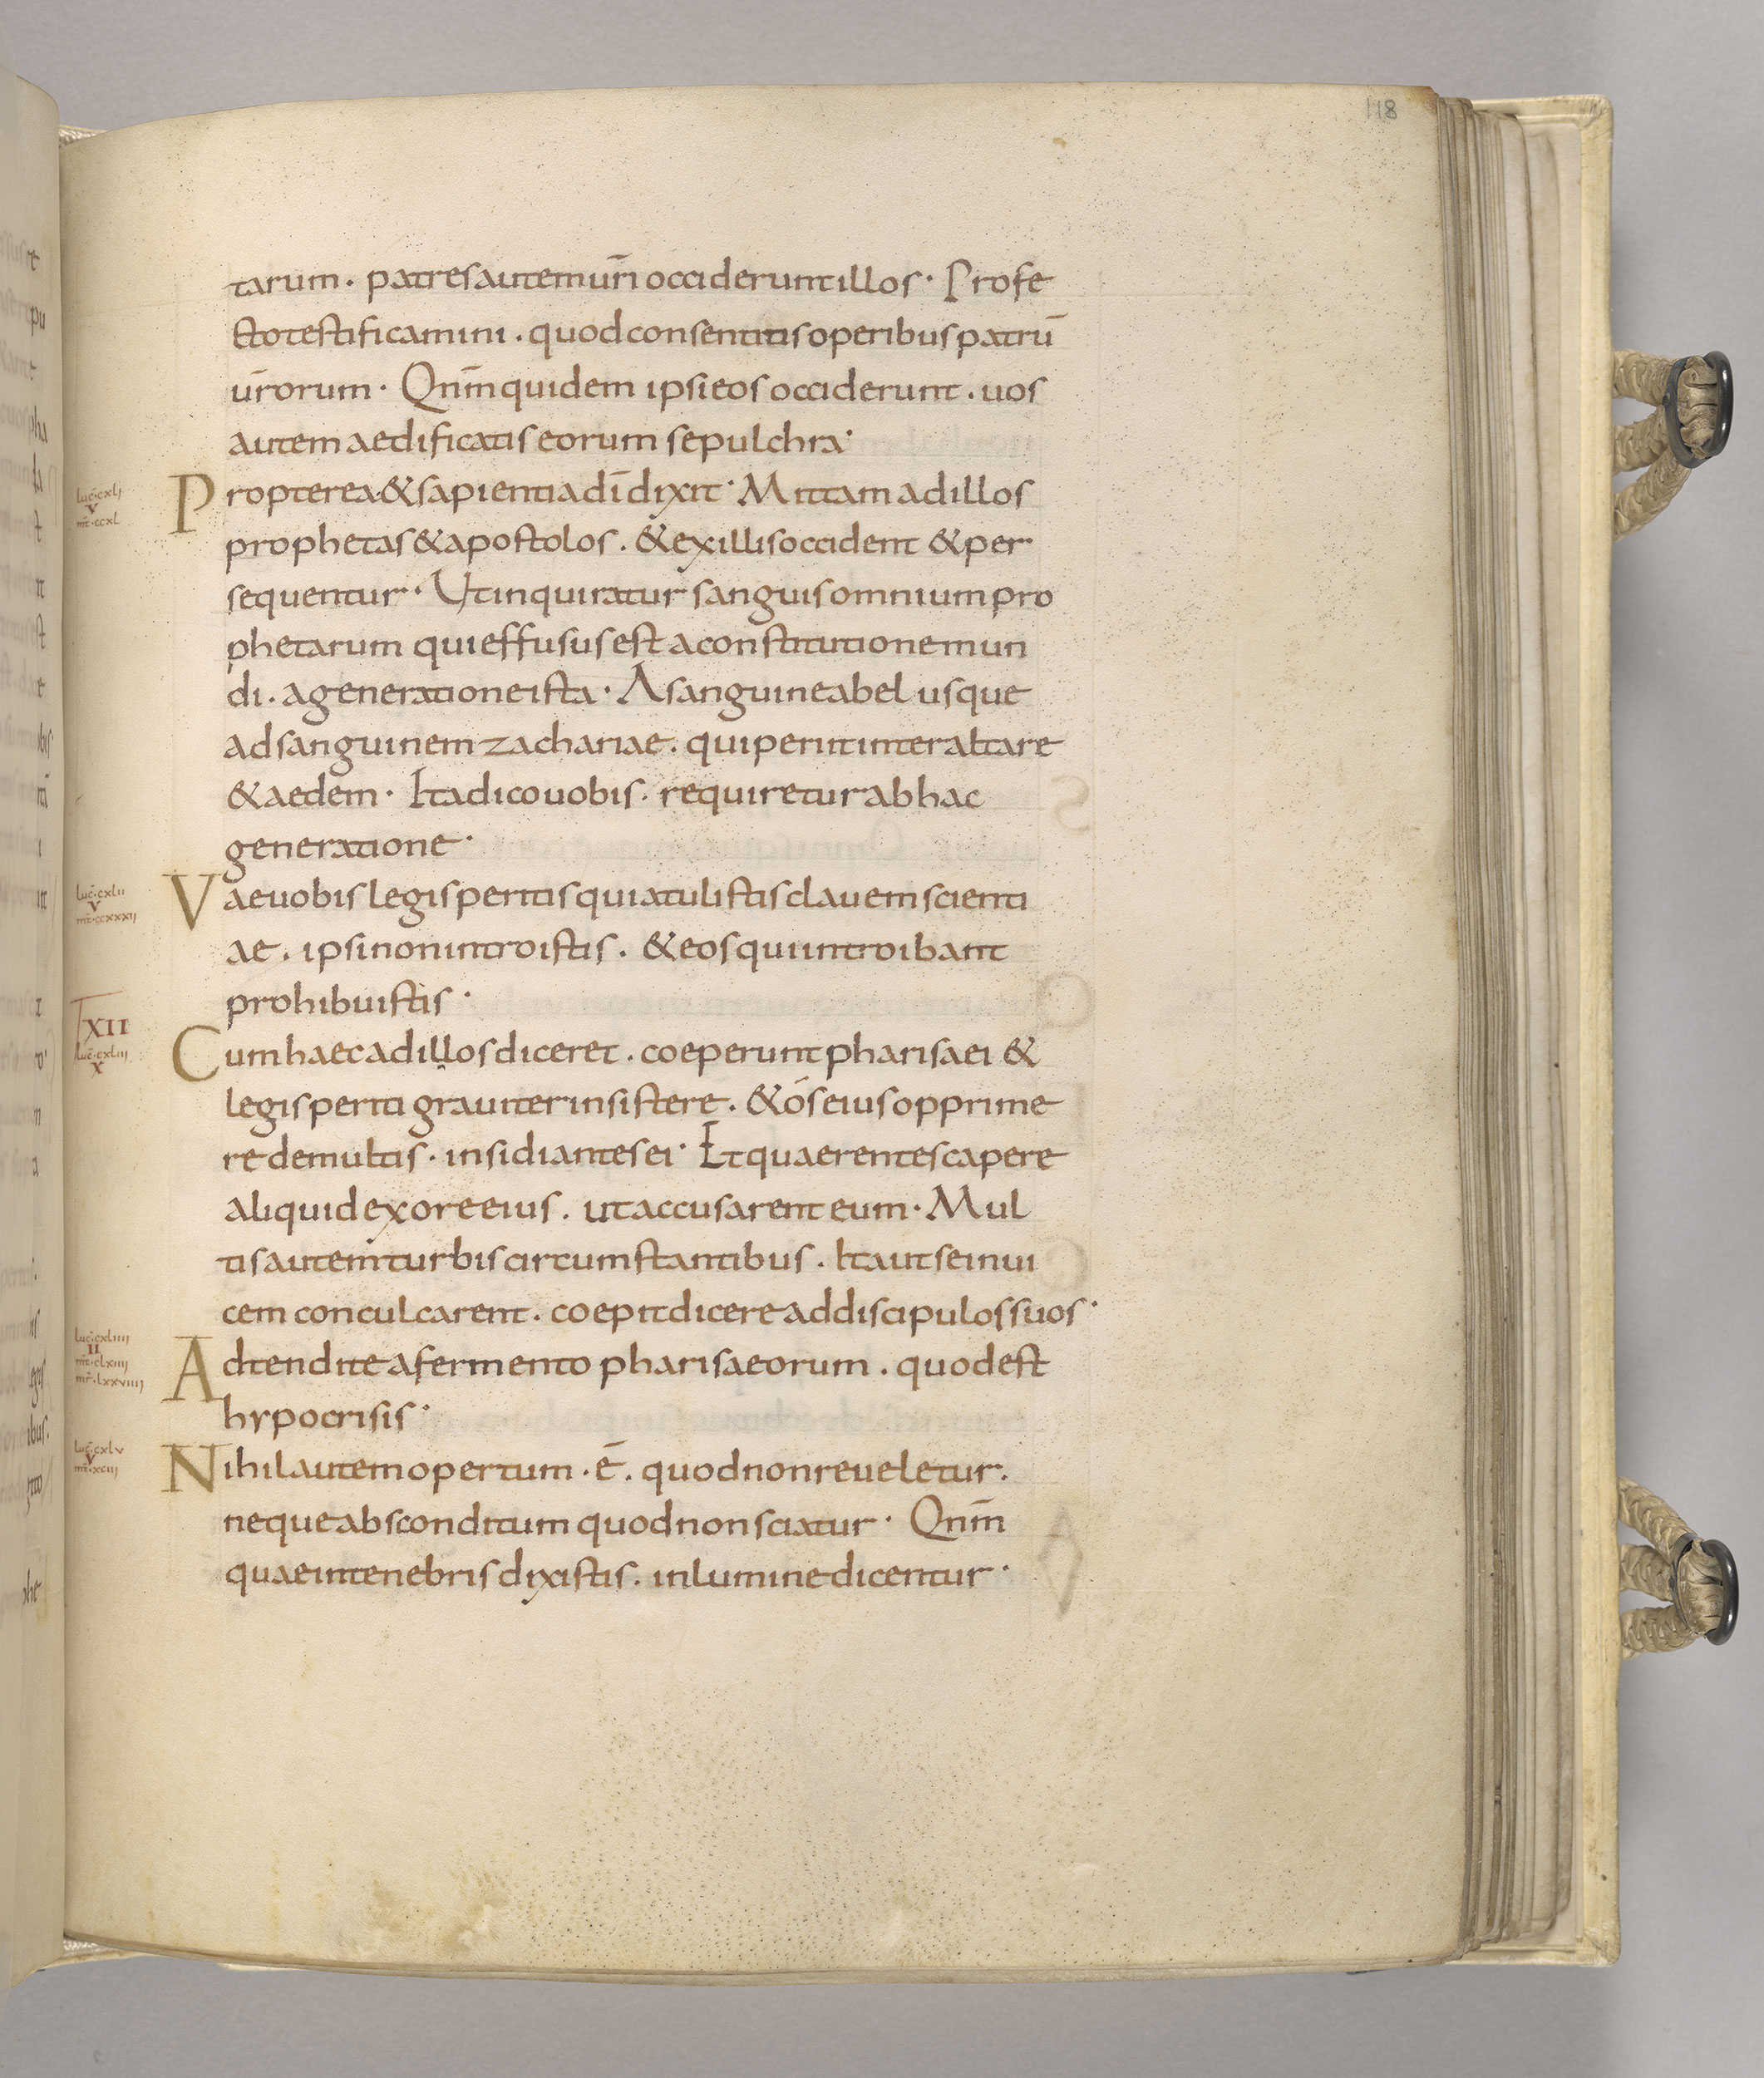 118
tarum · patres autem ur̄i occiderunt illos · Profe
cto testificamini · quod consentitis operibus patrū
ur̄orum · Qnm̄ quidem ipsi eos occiderunt · uos
autem aedificatis eorum sepulchra ·
luc̄ · cxlj
v
mt̄ · ccxl
Propterea & sapientia dī dixit · Mittam ad illos
prophetas & apostolos · & ex illis occident & per
sequentur · Ut inquiratur sanguis omnium pro
phetarum qui effusus est a constitutione mun
di · a generatione ista · A sanguine abel usque
ad sanguinem zachariae · qui periit inter altare
& aedem · Ita dico uobis · requiretur ab hac
generatione ·
luc̄ · cxlii
v
mt̄ · ccxxxii
Vae uobis legisperitis quia tulistis clauem scienti
ae · ipsi non introistis · & eos qui introibant
prohibuistis ·
XII
luc̄ · cxliii
x
Cum haec ad illos diceret · coeperunt pharisaei &
legisperiti grauiter insistere · & ós eius opprime
re de multis · insidiantes ei · Et quaerentes capere
aliquid ex ore eius · ut accusarent eum · Mul
tis autem turbis circumstantibus · Ita ut se inui
cem conculcarent · coepit dicere ad discipulos suos ·
luc̄ · cxliiii
II
mt̄ · clxiiii
mr̄ · lxxviiii
Adtendite a fermento pharisaeorum · quod est
hypocrisis ·
luc̄ · cxlv
v
mt̄ · xciii
Nihil autem opertum · ē · quod non reueletur ·
neque absconditum quod non sciatur · Qnm̄
quae in tenebris dixistis · in lumine dicentur ·